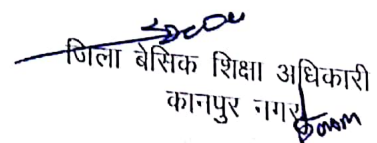 जिला बेसिक शिक्षा अधिकारी
कानपुर नगर